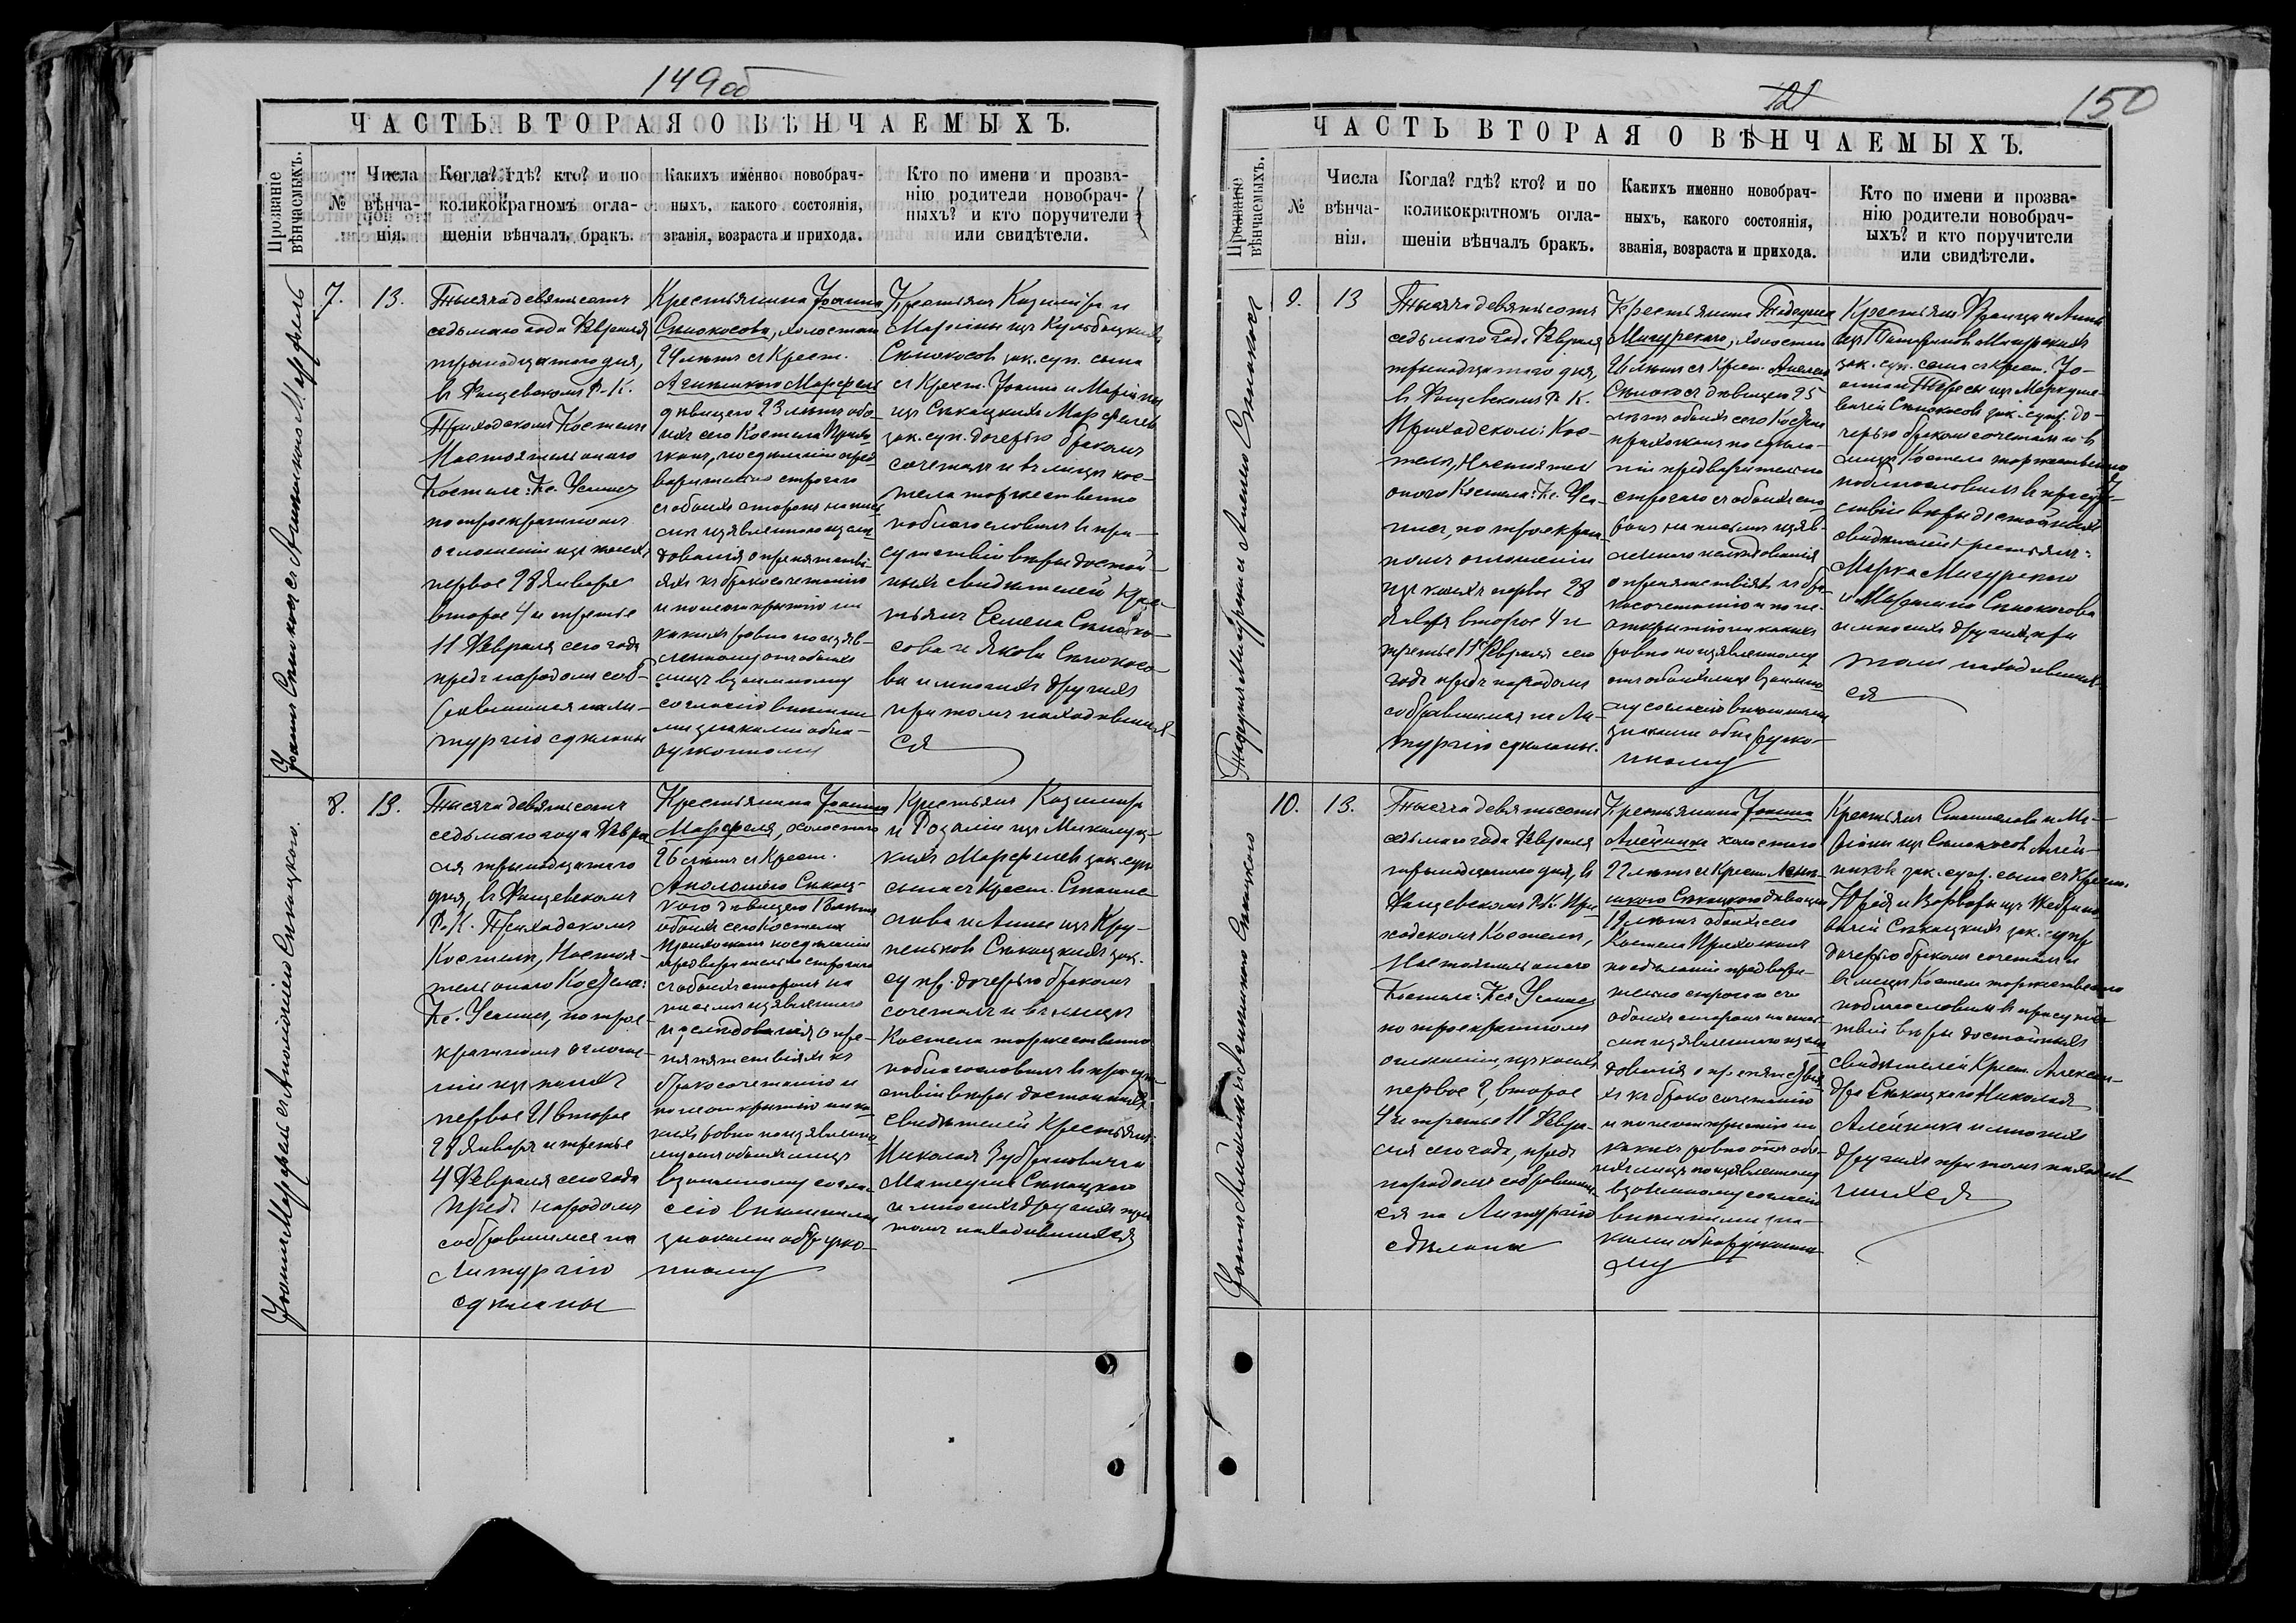 149об
ЧАСТЬ ВТОРАЯ О ВѢНЧАЕМЫХЪ.
Прозваніе вѣнчаемыхъ.
№
Числа вѣнча-
нія.
Когда? гдѣ? кто? и по
коликократномъ огла-
шеніи вѣнчалъ бракъ.
Какихъ именно новобрач-
ныхъ, какого состоянія,
званія, возраста и прихода.
Кто по имени и прозва-
нію родители новобрач-
ныхъ? и кто поручители
или свидѣтели.
7.
13.
Тысяча девятьсотъ
седьмаго года Февраля
тринадцатаго дня,
въ Фащевскомъ Р. К.
Приходскомъ Костелѣ
Настоятель онаго
Костела: Кс.
по троекратномъ
оглашеніи изъ коихъ
первое 28 Января
второе 4 и третье
11 Февраля сего года
предъ народомъ соб-
равшимся на ли-
тургію сдѣланы
Крестьянина Іоанна
Сѣнокосова, холостаго
24 лѣтъ съ Крест.
дѣвицею 23 лѣтъ обо-
ихъ сего Костела Прихо-
жанъ, по сдѣланіи пред-
варительно строгаго
съ обоихъ сторонъ на пись-
мѣ изъявленнаго изслѣ-
дованія о препятстві-
яхъ къ бракосочетанію
и по неоткрытію ни
какихъ равно по изъяв-
ленному отъ обоихъ
лицъ взаимному
согласію внѣшни-
ми знаками обна-
руженному
Крестьянъ Казиміра и
Сѣнокосов зак. суп. сына
съ Крест. Іоанна и Маріи
изъ Сѣкацкихъ Марфелев
зак. суп. дочерью бракомъ
сочеталъ и въ лицѣ кос-
тела торжественно
поблагословилъ въ при-
сутствіи вѣры достой-
ныхъ свидѣтелей Крес-
тьянъ Семена Сѣноко-
сова и Якова Сѣнокосо-
ва и многихъ другихъ
при томъ находившихъ
ся
8.
13.
Іоаннъ Марфель съ Аполоніею Сѣкацкою.
Тысяча девятьсотъ
седьмаго года Февра-
ля тринадцатаго
дня, въ Фащевскомъ
Р. К. Приходскомъ
Костелѣ, Настоя-
тель онаго Костела:
Кс. по трое-
кратномъ оглаше-
ніи изъ коихъ
первое 21 второе
28 Января и третье
4 Февраля сего года
предъ народомъ
собравшимся на
Литургію
сдѣланы
Крестьянина Іоанна
Марфеля, холостаго
26 лѣтъ съ Крест.
Аполоніею Сѣкац-
кою дѣвицею лѣтъ
обоихъ сего Костела
Прихожанъ по сдѣланіи
предварительно строгаго
съ обоихъ сторонъ на
письмѣ изъявленнаго
изслѣдованія о пре-
пятствіяхъ къ
бракосочетанію и
по неоткрытію ни ка-
кихъ равно по изъявленно-
му отъ обоихъ лицъ
взаимному согла-
сію внѣшними
знаками обнаруже-
нному
Крестьянъ Казиміра
и Розаліи изъ
Марфелев зак. суп.
сына съ Крест. Станис-
лава и Анны изъ Кру-
пеньковъ Сѣкацкихъ зак.
супр. дочерью бракомъ
сочеталъ и въ лицѣ
Костела торжественно
поблагословилъ въ присут-
ствіи вѣры достойныхъ
свидѣтелей Крестьянъ:
Николая
Матеуша Сѣкацкаго
и многихъ другихъ при
томъ находившихся
121
150
ЧАСТЬ ВТОРАЯ О ВѢНЧАЕМЫХЪ.
Прозваніе вѣнчаемыхъ.
№
Числа вѣнча-
нія.
Когда? гдѣ? кто? и по
коликократномъ огла-
шеніи вѣнчалъ бракъ.
Какихъ именно новобрач-
ныхъ, какого состоянія,
званія, возраста и прихода.
Кто по имени и прозва-
нію родители новобрач-
ыхъ? и кто поручители
или свидѣтели.
9.
13
Тысяча девятьсотъ
седьмаго года Февраля
тринадцатаго дня,
въ Фащевскомъ Р. К.
Приходском: Кос-
телѣ, Настоятель
онаго Костела: Кс.
по троекрат-
номъ оглашеніи
изъ коихъ первое 28
Января второе 4 и
третье 11 Февраля сего
года предъ народомъ
собравшимся на Ли-
тургію сдѣланы.
Крестьянина
холостаго
26 лѣтъ съ Крест.
дѣвицею 25
лѣтъ обоихъ сего Костела
прихожанъ по сдѣла-
ніи предварительно
строгаго съ обоихъ сто-
ронъ на письмѣ изъяв-
леннаго изслѣдованія
о препятствіяхъ къ бра-
косочетанію и по не-
открытію ни какихъ
равно по изъявленному
отъ обоихъ лицъ взаимно-
му согласію внѣшними
знаками обнаруже-
нному
Крестьянъ Франца и Анны
зак. суп. сына съ Крест. Іо-
анна и Терезы изъ Маркуше-
вичей Сѣнокосов зак. супр. до-
черью бракомъ сочеталъ и въ
лицѣ Костела торжественно
поблагословилъ въ присут-
ствіи вѣры достойныхъ
свидѣтелей Крестьянъ:
и Сѣнокосова
и многихъ другихъ при
томъ находившихъ-
ся
10.
13.
Тысяча девятьсотъ
седьмаго года Февраля
тринадцатаго дня, въ
Фащевскомъ Р. К. При-
ходскомъ Костелѣ,
Настоятель онаго
Костела: Кс.
по троекратномъ
оглашеніи, изъ коихъ
первое 2, второе
4 и третье 11 Февра-
ля сего года, предъ
народомъ собравшим-
ся на Литургію
сдѣланы
Крестьянина Іоанна
Алейника холостаго
22 лѣтъ съ Крест.
Сѣкацкою дѣвицею
19 лѣтъ обоихъ сего
Костела Прихожанъ
по сдѣланіи предвари-
тельно строгаго съ
обоихъ сторонъ на пись-
мѣ изъявленнаго изслѣ-
дованія о препятстві-
яхъ къ бракосочетанію
и по неоткрытію ни
какихъ равно отъ обо-
ихъ лицъ по изъявленному
взаимному согласію
внѣшними зна-
ками обнаруженно-
му
Крестьянъ Станислава и Ма-
ріанны изъ Сѣнокосов Алей-
никовъ зак. супр. сына съ Крест.
и Варвары изъ
Сѣкацкихъ зак. супр
дочерью бракомъ сочеталъ и
въ лицѣ Костела торжественно
поблагословилъ въ присутс-
твіи вѣры достойныхъ
свидѣтелей Крест. Алексан-
дра Сѣкацкаго Николая
Алейника и многихъ
другихъ при томъ находив-
шихся